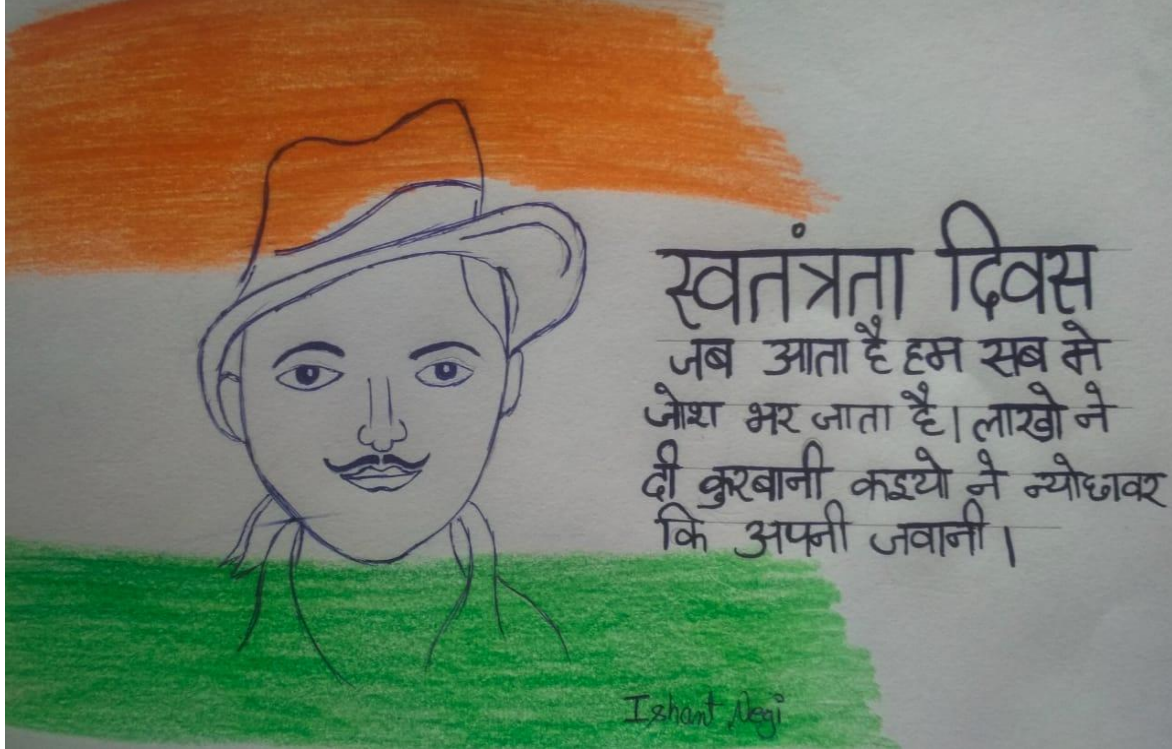 स्वतंत्रता दिवस
जब आता है हम सब मे
जोश भर जाता है। लाखो ने
दी कुरबानी कइयो ने न्योछावर
कि अपनी जवानी।
Ishant Negi